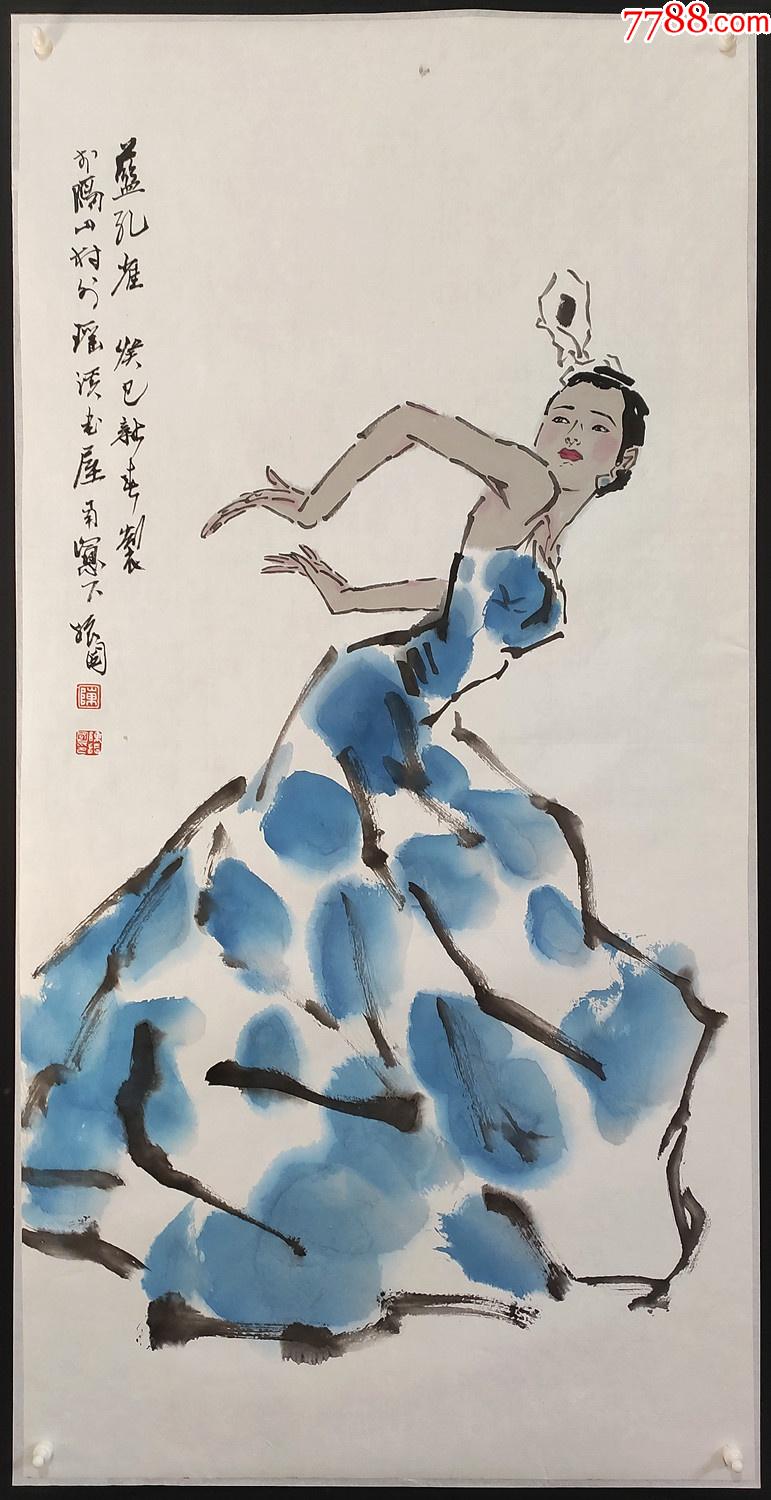 7788.com
藍孔雀 癸巳新春製
於隔山村外瑶溪書屋南窗下 振國
陳